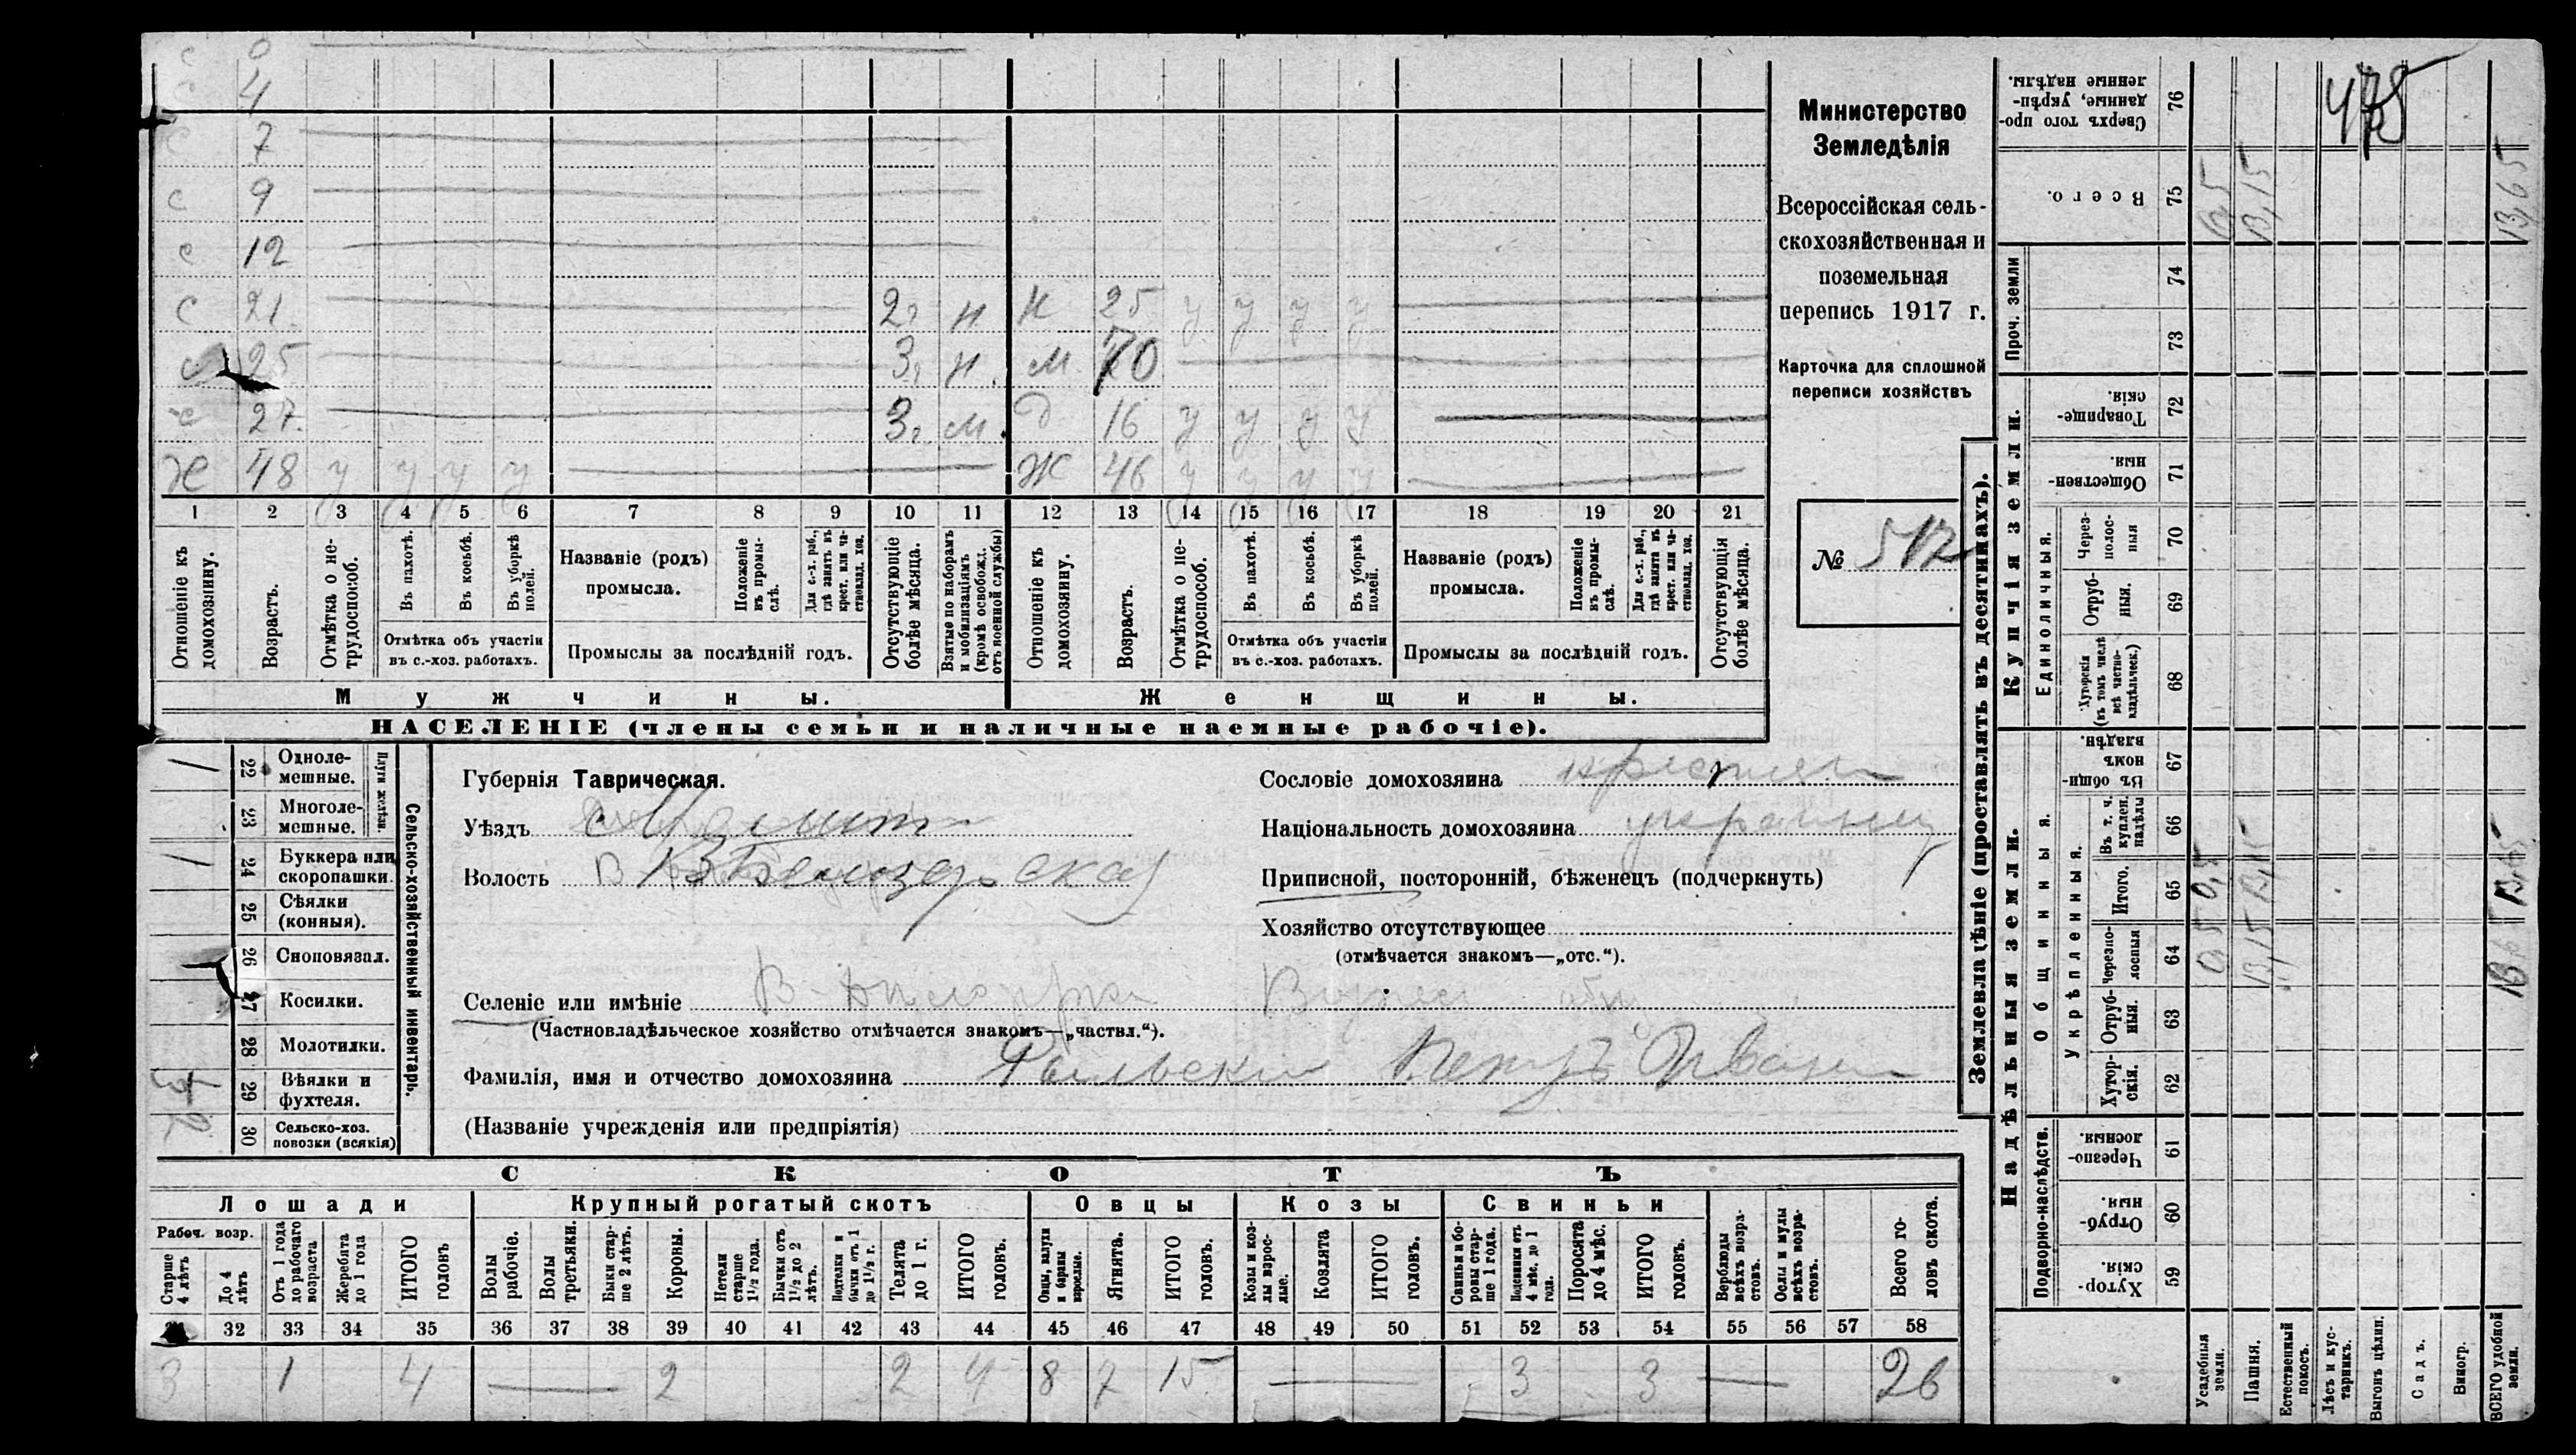 с 0
с 4
с 7
с 9
с 12
с 21. 2, н н 25 у у у у
с 25 3, н. м. 70
с 27. 3, м. д 16 у у у у
Ж 48 у у у у Ж 46 у у у у
1 2 3 4 5 6 7 8 9 10 11 12 13 14 15 16 17 18 19 20 21
Отношеніе къ домохозяину.
Возрастъ.
Отмѣтка о нетрудоспособ.
Въ пахотѣ.
Въ косьбѣ.
Въ уборкѣ полей.
Отмѣтка объ участіи
въ с.-хоз. работахъ.
Названіе (родъ)
промысла.
Положеніе въ промыслѣ.
Для с.-х. раб., гдѣ занятъ въ крест. или частновлад. хоз.
Промыслы за послѣдній годъ.
Отсутствующіе болѣе мѣсяца.
Взятые по наборамъ и мобилизаціямъ (кромѣ освобожд. отъ военной службы)
Отношеніе къ домохозяину.
Возрастъ.
Отмѣтка о нетрудоспособ.
Въ пахотѣ.
Въ косьбѣ.
Въ уборкѣ полей.
Отмѣтка объ участіи
въ с.-хоз. работахъ.
Названіе (родъ)
промысла.
Положеніе въ промыслѣ.
Для с.-х. раб., гдѣ занята въ крест. или частновлад. хоз.
Промыслы за послѣдній годъ.
Отсутствующія болѣе мѣсяца.
Мужчины. Женщины.
НАСЕЛЕНІЕ (члены семьи и наличные наемные рабочіе).
Министерство
Земледѣлія
Всероссійская сель-
скохозяйственная и
поземельная
перепись 1917 г.
Карточка для сплошной
переписи хозяйствъ
№ 512
Сельско-хозяйственный инвентарь.
Плуги желѣзн.
1 22 Однолемешные.
23 Многолемешные.
1 24 Буккера или скоропашки.
25 Сѣялки (конныя).
26 Сноповязал.
27 Косилки.
28 Молотилки.
29 Вѣялки и фухтеля.
30 Сельско-хоз. повозки (всякія)
Губернія Таврическая.
Уѣздъ Мелит
Волость В Бѣлозерская
Селеніе или имѣніе
(Частновладѣльческое хозяйство отмѣчается знакомъ—„частвл.“).
Фамилія, имя и отчество домохозяина Рыльский Петръ Иван
(Названіе учрежденія или предпріятія)
Сословіе домохозяина крестьян
Національность домохозяина украинец
Приписной, посторонній, бѣженецъ (подчеркнуть)
Хозяйство отсутствующее
(отмѣчается знакомъ—„отс.“).
СКОТЪ
Лошади Крупный рогатый скотъ Овцы Козы Свиньи
Рабоч. возр.
Старше 4 лѣтъ
До 4 лѣтъ
Отъ 1 года до рабочаго возраста
Жеребята до 1 года
ИТОГО головъ
Волы рабочіе.
Волы третьяки.
Быки старше 2 лѣтъ.
Коровы.
Нетели старше 1½ года.
Бычки отъ 1½ до 2 лѣтъ.
Подтелки и бычки отъ 1 до 1½ г.
Телята до 1 г.
ИТОГО головъ.
Овцы, валухи и бараны взрослые.
Ягнята.
ИТОГО головъ.
Козы и козлы взрослые.
Козлята
ИТОГО головъ.
Свиньи и боровы старше 1 года.
Подсвинки отъ 4 мѣс. до 1 года.
Поросята до 4 мѣс.
ИТОГО головъ.
Верблюды всѣхъ возрастовъ.
Ослы и мулы всѣхъ возрастовъ.
Всего головъ скота.
32 33 34 35 36 37 38 39 40 41 42 43 44 45 46 47 48 49 50 51 52 53 54 55 56 57 58
3 1 4 2 2 4 8 7 15 3 3 26
Землевладѣніе (проставлять въ десятинахъ).
Надѣльныя земли. Купчія земли. Проч. земли
Подворно-наслѣдств.
Общинныя.
Укрѣпленныя.
Единоличныя.
Хуторскія. 59
Отрубныя. 60
Черезполосныя. 61
Хуторскія. 62
Отрубныя. 63
Черезполосныя 64
Итого. 65
Въ т. ч. куплен. надѣлы 66
Въ общинномъ владѣн. 67
Хуторскія (въ томъ числѣ всѣ частновладѣльческ.) 68
Отрубныя. 69
Черезполосныя 70
Общественныя. 71
Товарищескія. 72
73
74
Всего. 75
Сверхъ того проданные, укрѣпленные надѣлы. 76
Усадебныя земли. 0,5 0,5
Пашня. 13,15 13,15 13,15
Естественный покосъ.
Лѣсъ и кустарникъ.
Выгонъ цѣлин.
Садъ.
Виногр.
ВСЕГО удобной земли. 13,65 13,65